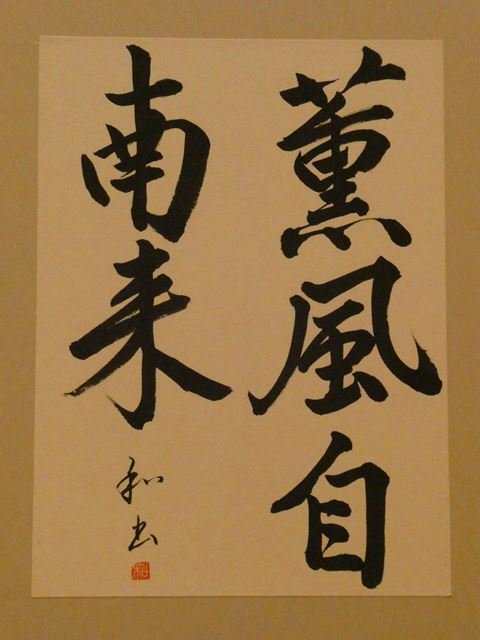 薫風自
南来
和出